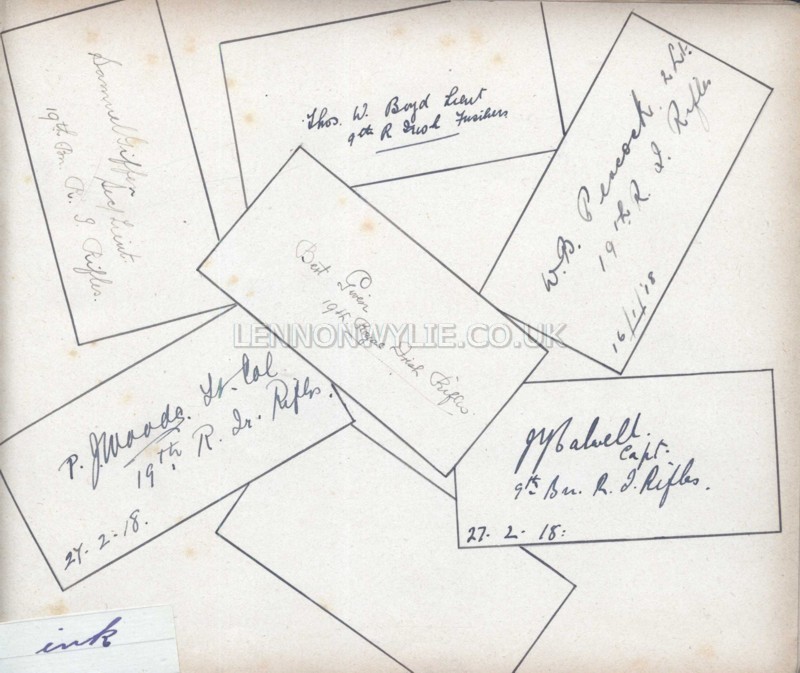 Samuel Giffen
Sec/Lieut.
19th Bn. R. I. Rifles.
Thos. W. Boyd Lieut
9th R Irish Fusiliers
W. B. Peacock 2 Lt.
19th R. I. Rifles
16/1/18
Best
19th Royal Irish Rifles.
LENNONWYLIE.CO.UK
P. J. Woods. Lt. Col
19th R. Ir. Rifles.
27-2-18.
Capt.
9th Bn. R. I. Rifles.
27. 2. 18:
ink